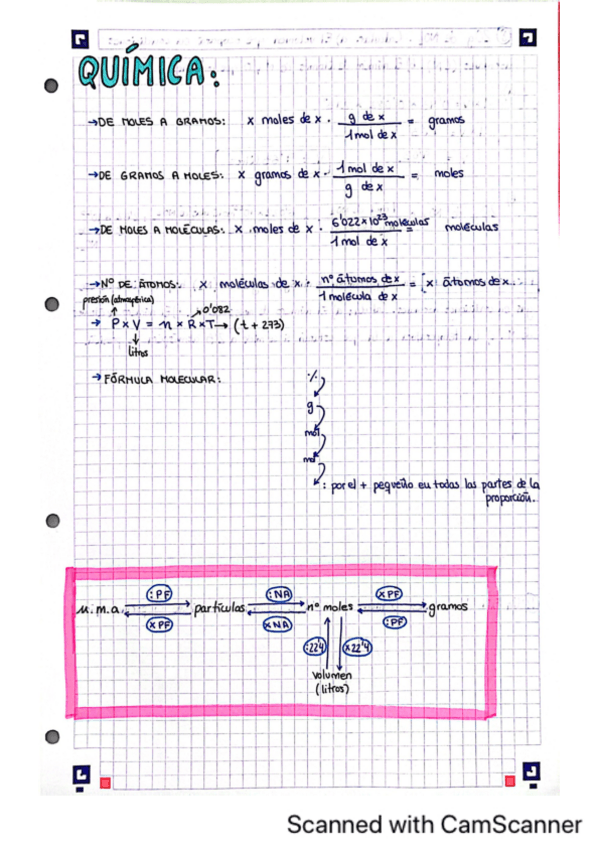 QUÍMICA:
→DE MOLES A GRAMOS: x moles de x · g de x / 1 mol de x = gramos
→DE GRAMOS A MOLES: x gramos de x · 1 mol de x / g de x = moles
→DE MOLES A MOLÉCULAS: x moles de x · 6'022x10²³ moléculas / 1 mol de x = moléculas
→Nº DE ÁTOMOS: x moléculas de x · nº átomos de x / 1 molécula de x = x átomos de x
presión (atmosférica)
↑ ↗0'082
→ P x V = n x R x T → (t + 273)
↓
litros
→ FÓRMULA MOLECULAR: %
g
mol
: por el + pequeño en todas las partes de la
proporción.
:PF :NA xPF
u.m.a. partículas nº moles gramos
xPF xNA :PF
:22'4 x22'4
volumen
(litros)
Scanned with CamScanner